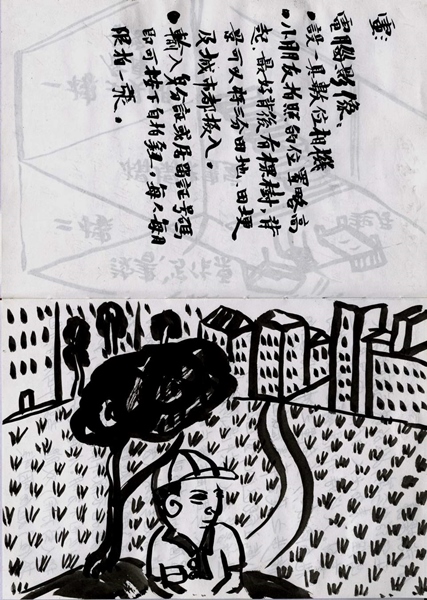 電腦影像、
●設一具數位相機
●小朋友拍照的位置略高
起、最好背後有棵樹，背
景可以將三分田地、田埂
及城市都拔入。
●輸入身份証或居留証号碼
即可按下自拍鈕，每人每月
限拍一張。